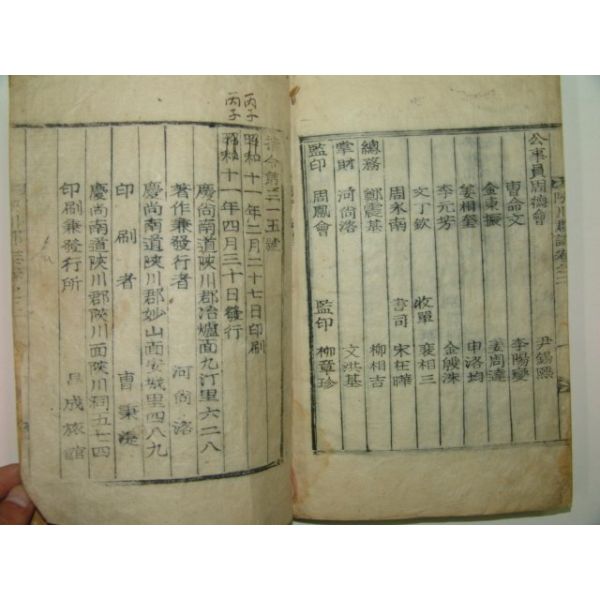 陜川郡誌卷之二
公事員 周德會 尹錫熙
曺命文 李陽燮
金東振 姜周達
姜相奎 申洛均
李元芳 金殷洙
文丁欽 收單 裵相三
周永南 書司 宋在曄
總務 鄭震基 柳相吉
掌財 河尙洛 文洪基
監印 周鳳會 監印 柳章珍
指令第三一五號
丙子 昭和十一年二月二十七日印刷
丙子 昭和十一年四月三十日發行
慶尙南道陜川郡冶爐面九汀里六二八
著作兼發行者 河尙洛
慶尙南道陜川郡妙山面安城里四八九
印刷者 曺秉
慶尙南道陜川郡陜川面陜川洞五七四
印刷兼發行所 成旅館